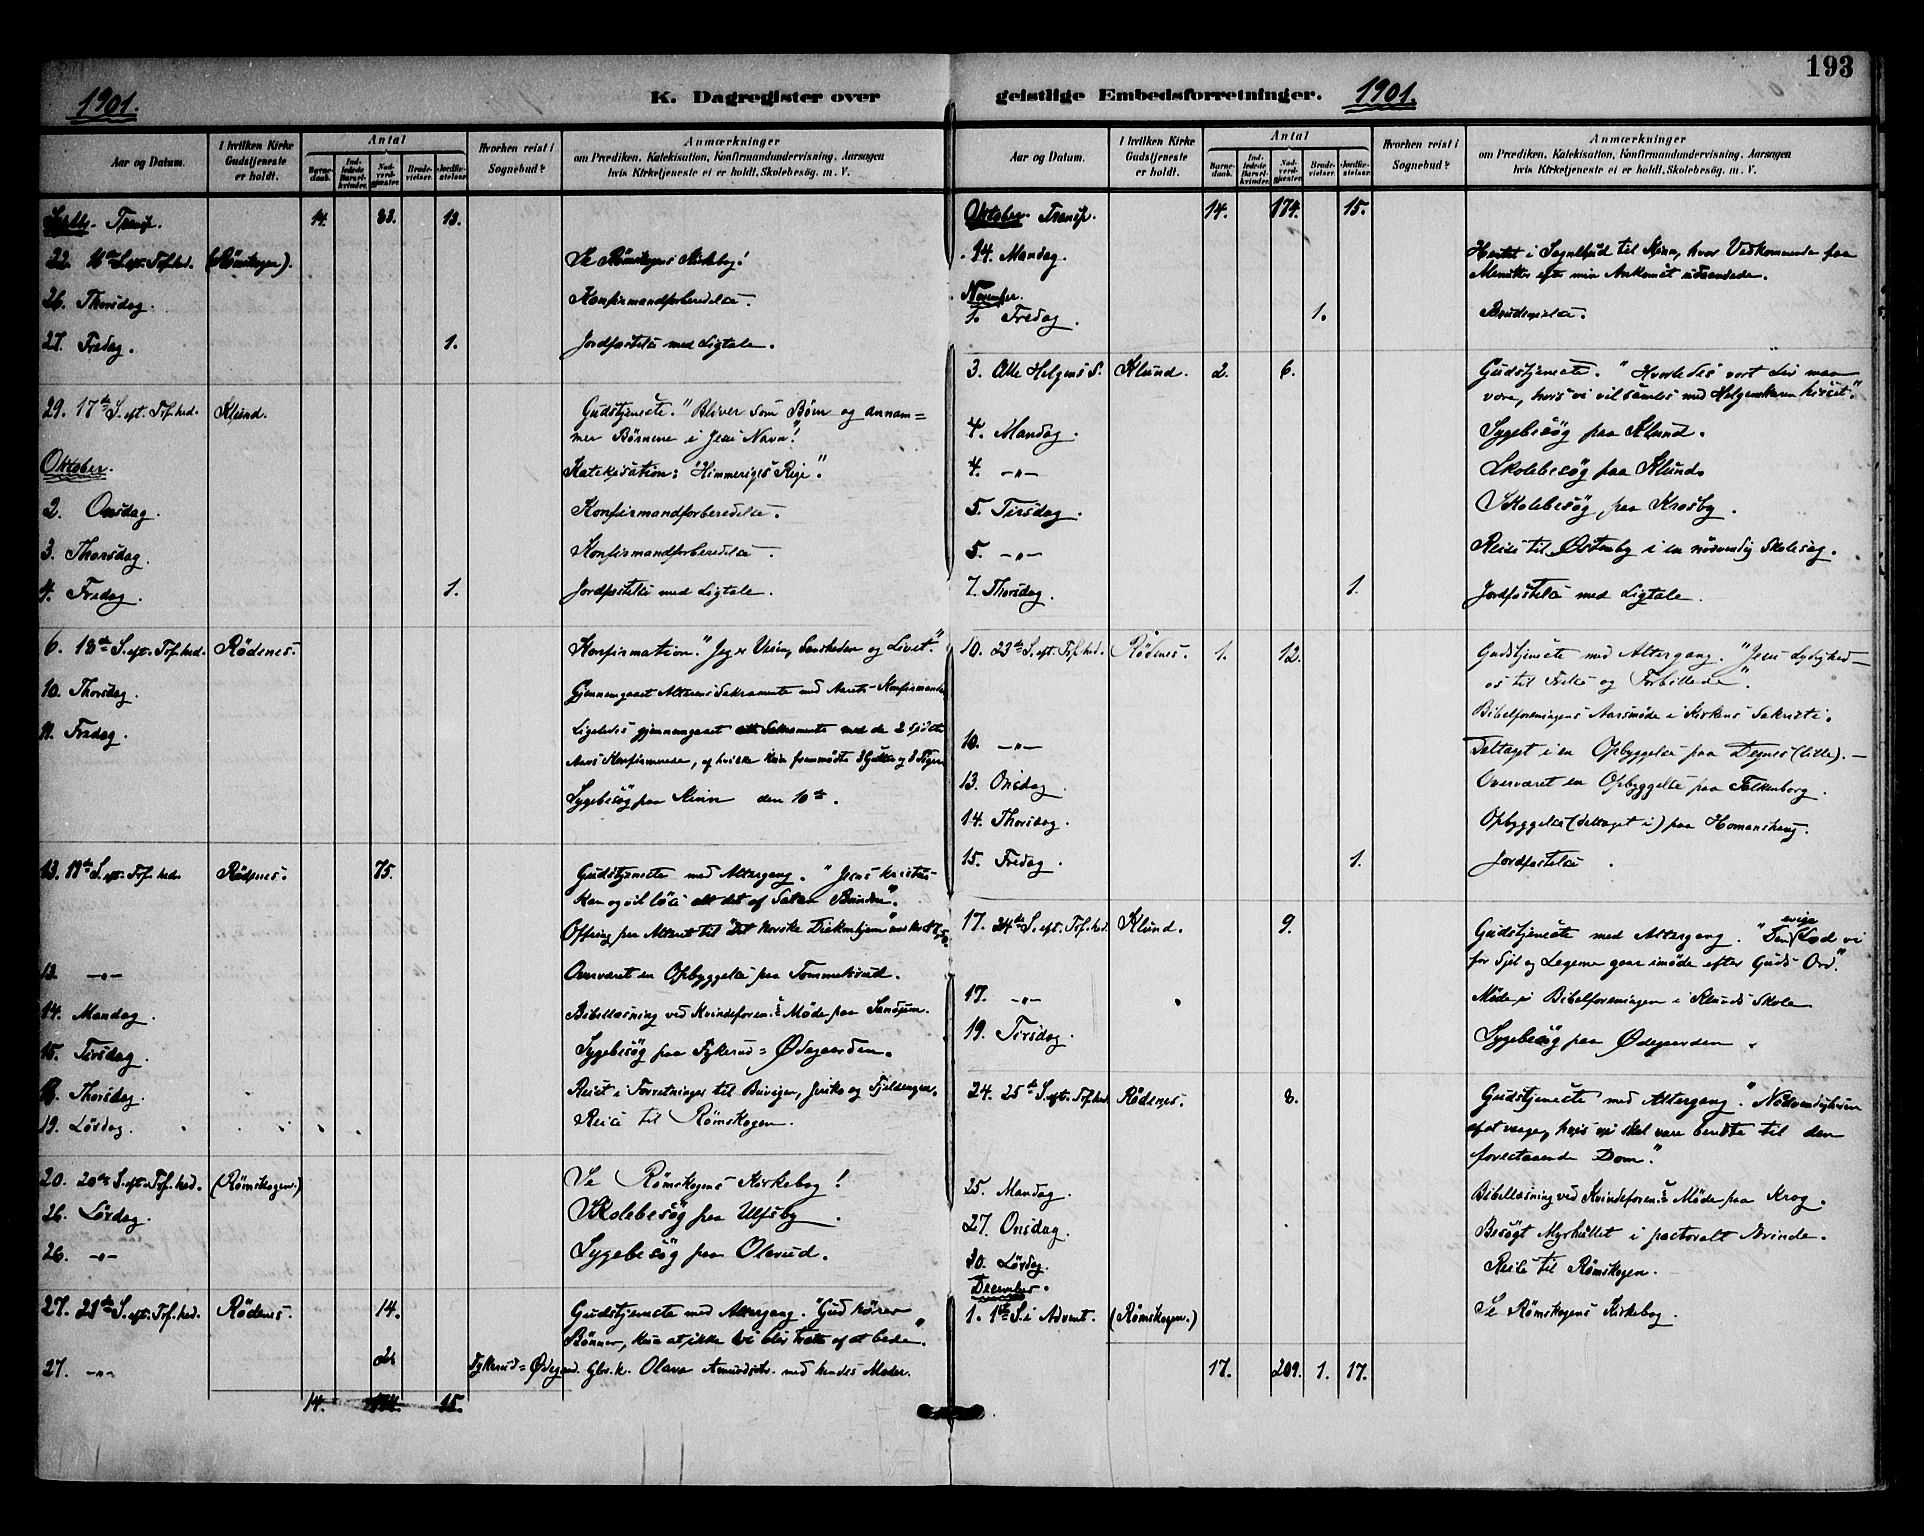 193
1901.
K. Dagregister over
geistlige Embedsforretninger.
1901.
Aar og Datum.
I hvilken Kirke Gudstjeneste er holdt.
Antal
Barnedaab.
Indledede Barselkvinder.
Nadverdgjæster.
Brudevielser.
Jordfæstelser.
Hvorhen reist i Sognebud?
Anmærkninger
om Prædiken, Katekisation, Konfirmandundervisning, Aarsagen
hvis Kirketjeneste ei er holdt, Skolebesøg, m. V.
Septbr. Transp. 14. 83. 13.
22. 16de S. eft. Tref.hed. (Rømskogen). Se Rømskogens Kirkebog!
26. Thorsdag. Konfirmandforberedelse.
27. Fredag. 1. Jordfæstelse med Ligtale.
29. 17de S. eft. Tref.hed. Klund. Gudstjeneste. "Bliver som Børn og annam=
mer Børnene i Jesu Navn!"
Oktober. Katekisation: "Himmeriges Rige".
2. Onsdag. Konfirmandforberedelse.
3. Thorsdag. Konfirmandforberedelse.
4. Fredag. 1. Jordfæstelse med Ligtale.
6. 18de S. eft. Tref.hed. Rødenes. Konfirmation. "Jeg er Veien, Sandheden og Livet."
10. Thorsdag. Gjennemgaaet Alterens Sakramente med Aarets Konfirmander
11. Fredag. Ligeledes gjennemgaaet Sakramente med de 2 sidste
Aars Konfirmerede, af hvilke kun fremmødte 3 Gutter og 3 Piger
Sygebesøg paa Kinn den 10de.
13. 19de S. eft. Tref.hed. Rødenes. 75. Gudstjeneste med Altergang. "Jesus Kristus
kan og vil løse alt det af Satan Bundne".
Offring paa Alteret til "Det norske Diakonhjem"
13. -"- Overværet en Opbyggelse paa Tommelsrud.
14. Mandag. Bibellæsning ved Kvindeforen.s Møde paa
15. Tirsdag. Sygebesøg paa Fykerud=Ødegaarden.
Thorsdag. Reist i Forretninger til Buvigen, Jeriko og Fjeldengen.
19. Lørdag. Reise til Rømskogen.
20. 20de S. eft. Tref.hed. (Rømskogen.) Se Rømskogens Kirkebog!
26. Lørdag. Skolebesøg paa Ulfsby.
26. -"- Sygebesøg paa Olerud.
27. 21de S. eft. Tref.hed. Rødenes. 14. Gudstjeneste med Altergang. "Gud hører
Bønner, kun at ikke vi blir trætte af at bede".
27. -"- 2 Fykerud=Ødegaard. Gbr.k. Olava med hendes Moder.
14. 174. 15.
Aar og Datum.
I hvilken Kirke Gudstjeneste er holdt.
Antal
Barnedaab.
Indledede Barselkvinder.
Nadverdgjæster.
Brudevielser.
Jordfæstelser.
Hvorhen reist i Sognebud?
Anmærkninger
om Prædiken, Katekisation, Konfirmandundervisning, Aarsagen
hvis Kirketjeneste ei er holdt, Skolebesøg, m. V.
Oktober. Transp. 14. 174. 15.
14. Mandag. Hentet i Sognebud til Kinn, hvor Vedkommende faa
Minutter efter min Ankomst udaandede.
November.
1. Fredag. 1. Brudevielse.
3. Alle Helgens S. Klund. 2. 6. Gudstjeneste. "Hvorledes vort Liv maa
være, hvis vi vil samles med Helgenskaren hisset".
4. Mandag. Sygebesøg paa Klund.
4. -"- Skolebesøg paa Klund.
5. Tirsdag. Skolebesøg paa Krosby.
5. -"- Reise til Østenby i en nødvendig Skolesag.
7. Thorsdag. 1. Jordfæstelse med Ligtale.
10. 23de S. eft. Tref.hed. Rødenes. 1. 12. Gudstjeneste med Altergang. "Jesu Lydighed —
os til Frelse og Forbillede".
Bibelforeningens Aarsmøde i Kirkens Sakristi.
10. -"- Deltaget i en Opbyggelse paa Degnes (lille). —
13. Onsdag. Overværet en Opbyggelse paa Falkenborg.
14. Thorsdag. Opbyggelse (deltaget i) paa Homanshaug.
15. Fredag. 1. Jordfæstelse.
17. 24de S. eft. Tref.hed. Klund. 9. Gudstjeneste med Altergang. "Den evige Lod vi
for Sjel og Legeme gaar imøde efter Guds Ord."
17. -"- Møde i Bibelforeningen i Klunds Skole
19. Tirsdag. Sygebesøg paa Ødegaarden.
24. 25de S. eft. Tref.hed. Rødenes. 8. Gudstjeneste med Altergang. "Nødvendigheden
af at vaage, hvis vi skal være beredte til den
forestaaende Dom."
25. Mandag. Bibellæsning ved Kvindeforen.s Møde paa Krog.
27. Onsdag. Besøgt Myrhullet i pastoralt Ærinde.
30. Lørdag. Reise til Rømskogen.
December.
1. 1ste S. i Advent. (Rømskogen.) Se Rømskogens Kirkebog.
17. 209. 1. 17.